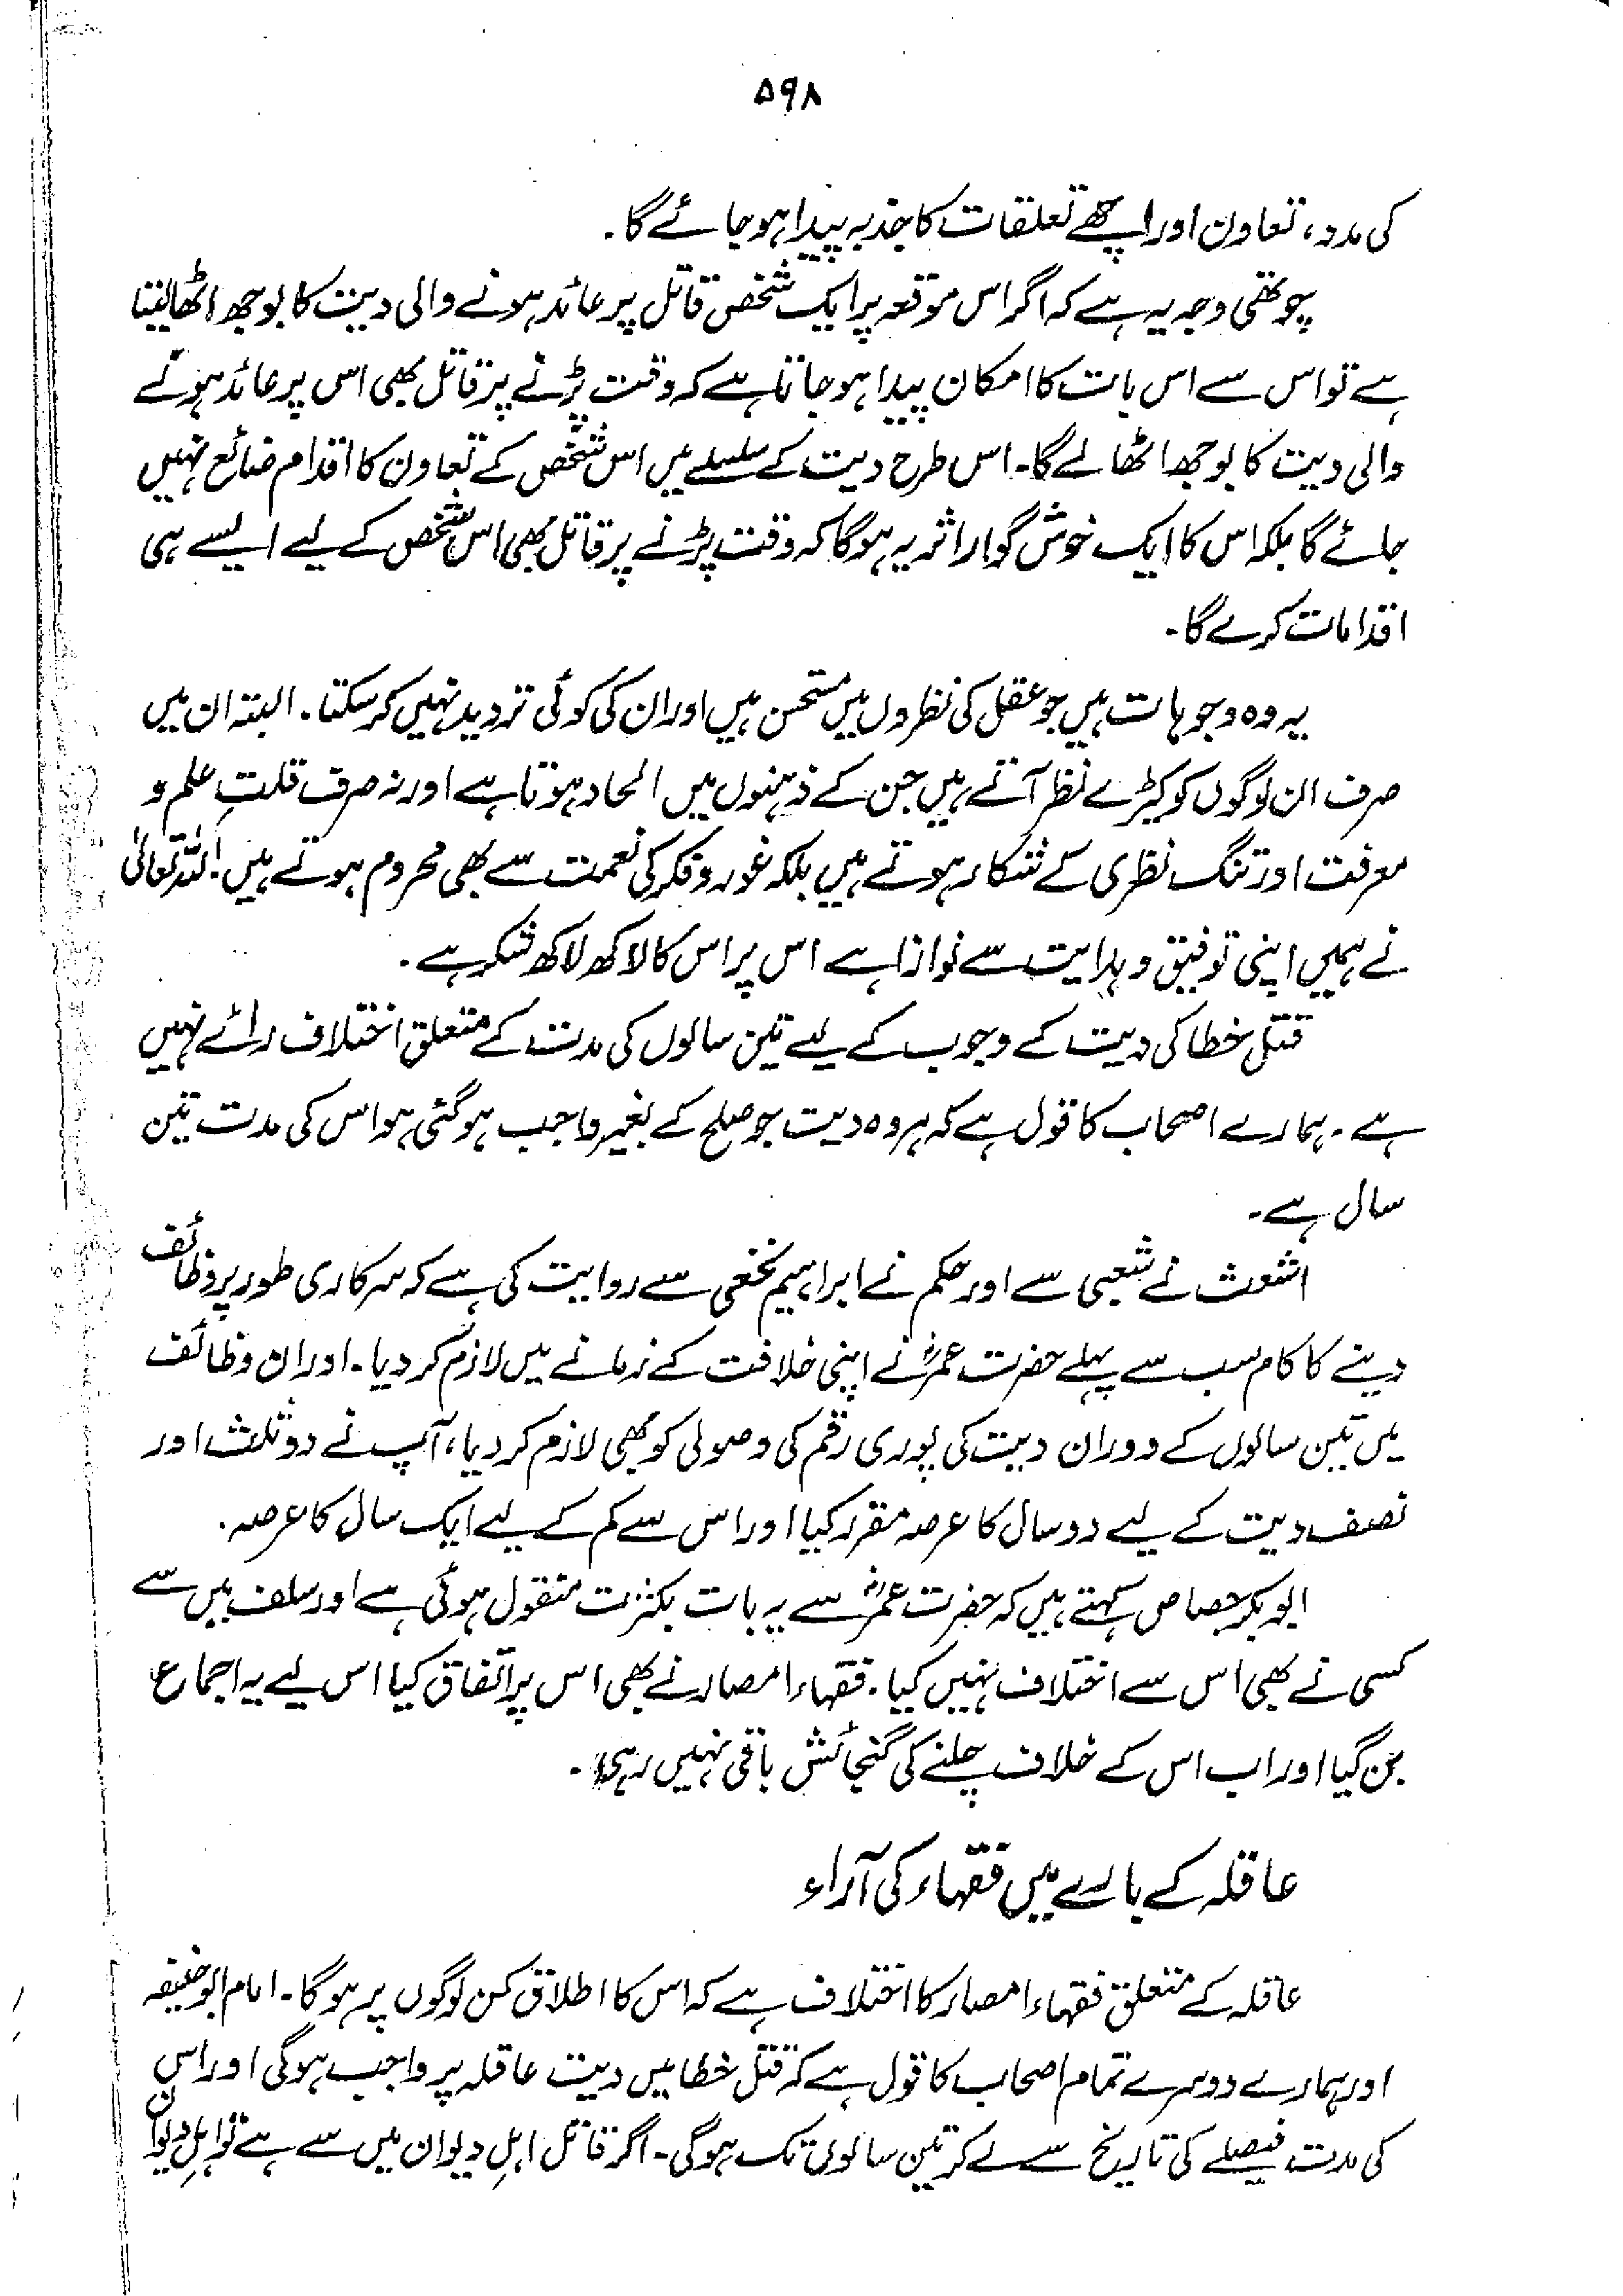 ۵۹۸
کی مدد، تعاون اور اچھے تعلقات کا جذبہ پیدا ہو جائے گا۔
چوتھی وجہ یہ ہے کہ اگر اس موقعہ پر ایک شخص قاتل پر عائد ہونے والی دیت کا بوجھ اٹھا لیتا
ہے تو اس سے اس بات کا امکان پیدا ہو جاتا ہے کہ وقت پڑنے پر قاتل بھی اس پر عائد ہونے
والی دیت کا بوجھ اٹھا لے گا۔ اس طرح دیت کے سلسلے میں اس شخص کے تعاون کا اقدام ضائع نہیں
جائے گا بلکہ اس کا ایک خوش گوار اثر یہ ہو گا کہ وقت پڑنے پر قاتل بھی اس شخص کے لیے ایسے ہی
اقدامات کرے گا۔
یہ وہ وجوہات ہیں جو عقل کی نظروں میں مستحسن ہیں اور ان کی کوئی تردید نہیں کر سکتا۔ البتہ ان میں
صرف ان لوگوں کو کیڑے نظر آتے ہیں جن کے ذہنوں میں الحاد ہوتا ہے اور نہ صرف قلتِ علم و
معرفت اور تنگ نظری کے شکار ہوتے ہیں بلکہ غور و فکر کی نعمت سے بھی محروم ہوتے ہیں۔ اللہ تعالیٰ
نے ہمیں اپنی توفیق و ہدایت سے نوازا ہے اس پر اس کا لاکھ لاکھ شکر ہے۔
قتل خطا کی دیت کے وجوب کے لیے تین سالوں کی مدت کے متعلق اختلاف رائے نہیں
ہے۔ ہمارے اصحاب کا قول ہے کہ ہر وہ دیت جو صلح کے بغیر واجب ہو گئی ہو اس کی مدت تین
سال ہے۔
اشعث نے شعبی سے اور حکم نے ابراہیم نخعی سے روایت کی ہے کہ سرکاری طور پر وظائف
دینے کا کام سب سے پہلے حضرت عمرؓ نے اپنی خلافت کے زمانے میں لازم کر دیا۔ اور ان وظائف
میں تین سالوں کے دوران دیت کی پوری رقم کی وصولی کو بھی لازم کر دیا، آپ نے دو ثلث اور
نصف دیت کے لیے دو سال کا عرصہ مقرر کیا اور اس سے کم کے لیے ایک سال کا عرصہ۔
ابوبکر جصاص کہتے ہیں کہ حضرت عمرؓ سے یہ بات بکثرت منقول ہوئی ہے اور سلف میں سے
کسی نے بھی اس سے اختلاف نہیں کیا۔ فقہاء امصار نے بھی اس پر اتفاق کیا اس لیے یہ اجماع
بن گیا اور اب اس کے خلاف چلنے کی گنجائش باقی نہیں رہی۔
عاقلہ کے بارے میں فقہاء کی آراء
عاقلہ کے متعلق فقہاء امصار کا اختلاف ہے کہ اس کا اطلاق کن لوگوں پر ہو گا۔ امام ابو حنیفہ
اور ہمارے دوسرے تمام اصحاب کا قول ہے کہ قتل خطا میں دیت عاقلہ پر واجب ہو گی اور اس
کی مدت فیصلے کی تاریخ سے لے کر تین سالوں تک ہو گی۔ اگر قاتل اہلِ دیوان میں سے ہے تو اہلِ دیوان